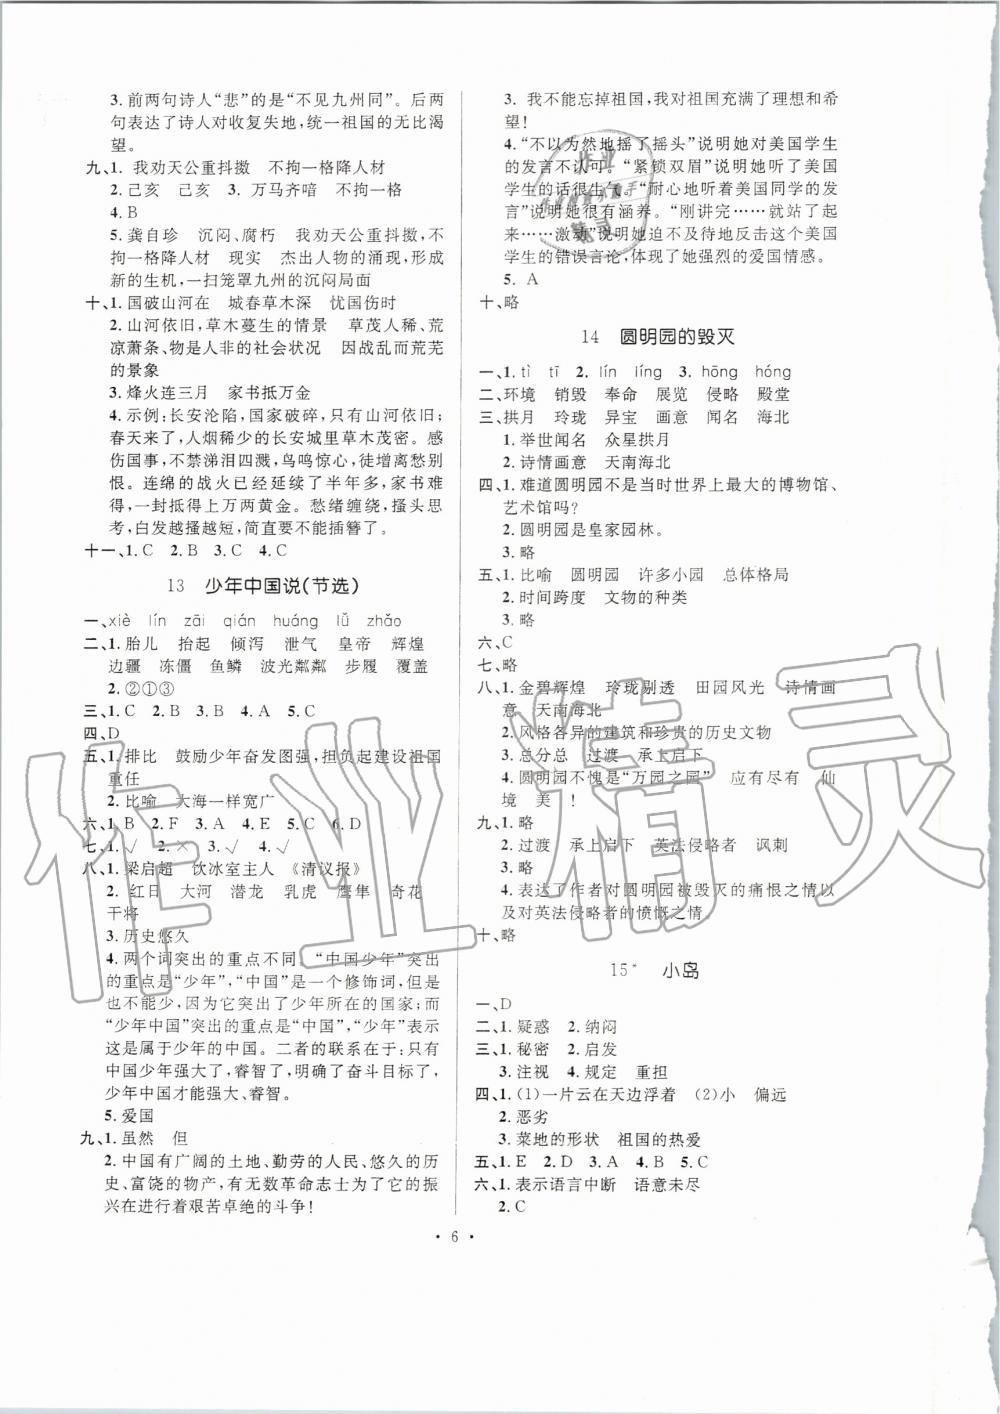 3. 前两句诗人“悲”的是“不见九州同”。后两
句表达了诗人对收复失地,统一祖国的无比渴
望。
九、1. 我劝天公重抖擞　不拘一格降人材
2. 己亥　己亥　3. 万马齐喑　不拘一格
4. B
5. 龚自珍　沉闷、腐朽　我劝天公重抖擞,不
拘一格降人材　现实　杰出人物的涌现,形成
新的生机,一扫笼罩九州的沉闷局面
十、1. 国破山河在　城春草木深　忧国伤时
2. 山河依旧,草木蔓生的情景　草茂人稀、荒
凉萧条、物是人非的社会状况　因战乱而荒芜
的景象
3. 烽火连三月　家书抵万金
4. 示例:长安沦陷,国家破碎,只有山河依旧;
春天来了,人烟稀少的长安城里草木茂密。感
伤国事,不禁涕泪四溅,鸟鸣惊心,徒增离愁别
恨。连绵的战火已经延续了半年多,家书难
得,一封抵得上万两黄金。愁绪缠绕,搔头思
考,白发越搔越短,简直要不能插簪了。
十一、1. C　2. B　3. C　4. C
13　少年中国说(节选)
一、xiè　lín　zāi　qián　huáng　lǚ　zhǎo
二、1. 胎儿　抬起　倾泻　泄气　皇帝　辉煌
边疆　冻僵　鱼鳞　波光粼粼　步履　覆盖
2. ②①③
三、1. C　2. B　3. B　4. A　5. C
四、D
五、1. 排比　鼓励少年奋发图强,担负起建设祖国
重任
2. 比喻　大海一样宽广
六、1. B　2. F　3. A　4. E　5. C　6. D
七、1. √　2. ×　3. √　4. √
八、1. 梁启超　饮冰室主人　《清议报》
2. 红日　大河　潜龙　乳虎　鹰隼　奇花
干将
3. 历史悠久
4. 两个词突出的重点不同。“中国少年”突出
的重点是“少年”,“中国”是一个修饰词,但是
也不能少,因为它突出了少年所在的国家;而
“少年中国”突出的重点是“中国”,“少年”表示
这是属于少年的中国。二者的联系在于:只有
中国少年强大了,睿智了,明确了奋斗目标了,
少年中国才能强大、睿智。
5. 爱国
九、1. 虽然　但
2. 中国有广阔的土地、勤劳的人民、悠久的历
史、富饶的物产,有无数革命志士为了它的振
兴在进行着艰苦卓绝的斗争!
3. 我不能忘掉祖国,我对祖国充满了理想和希
望!
4. “不以为然地摇了摇头”说明她对美国学生
的发言不认可。“紧锁双眉”说明她听了美国
学生的话很生气。“耐心地听着美国同学的发
言”说明她很有涵养。“刚讲完……就站了起
来……激动”说明她迫不及待地反击这个美国
学生的错误言论,体现了她强烈的爱国情感。
5. A
十、略
14　圆明园的毁灭
一、1. tì　tī　2. lín　líng　3. hōng　hóng
二、环境　销毁　奉命　展览　侵略　殿堂
三、拱月　玲珑　异宝　画意　闻名　海北
1. 举世闻名　众星拱月
2. 诗情画意　天南海北
四、1. 难道圆明园不是当时世界上最大的博物馆、
艺术馆吗?
2. 圆明园是皇家园林。
3. 略
五、1. 比喻　圆明园　许多小园　总体格局
2. 时间跨度　文物的种类
3. 略
六、C
七、略
八、1. 金碧辉煌　玲珑剔透　田园风光　诗情画
意　天南海北
2. 风格各异的建筑和珍贵的历史文物
3. 总分总　过渡　承上启下
4. 圆明园不愧是“万园之园”　应有尽有　仙
境　美　!
九、1. 略
2. 过渡　承上启下　英法侵略者　讽刺
3. 略
4. 表达了作者对圆明园被毁灭的痛恨之情以
及对英法侵略者的愤慨之情。
十、略
15*　小岛
一、D
二、1. 疑惑　2. 纳闷
三、1. 秘密　2. 启发
3. 注视　4. 规定　重担
四、1. (1)一片云在天边浮着　(2)小　偏远
2. 恶劣
3. 菜地的形状　祖国的热爱
五、1. E　2. D　3. A　4. B　5. C
六、1. 表示语言中断　语意未尽
2. C
• 6 •
作业精灵